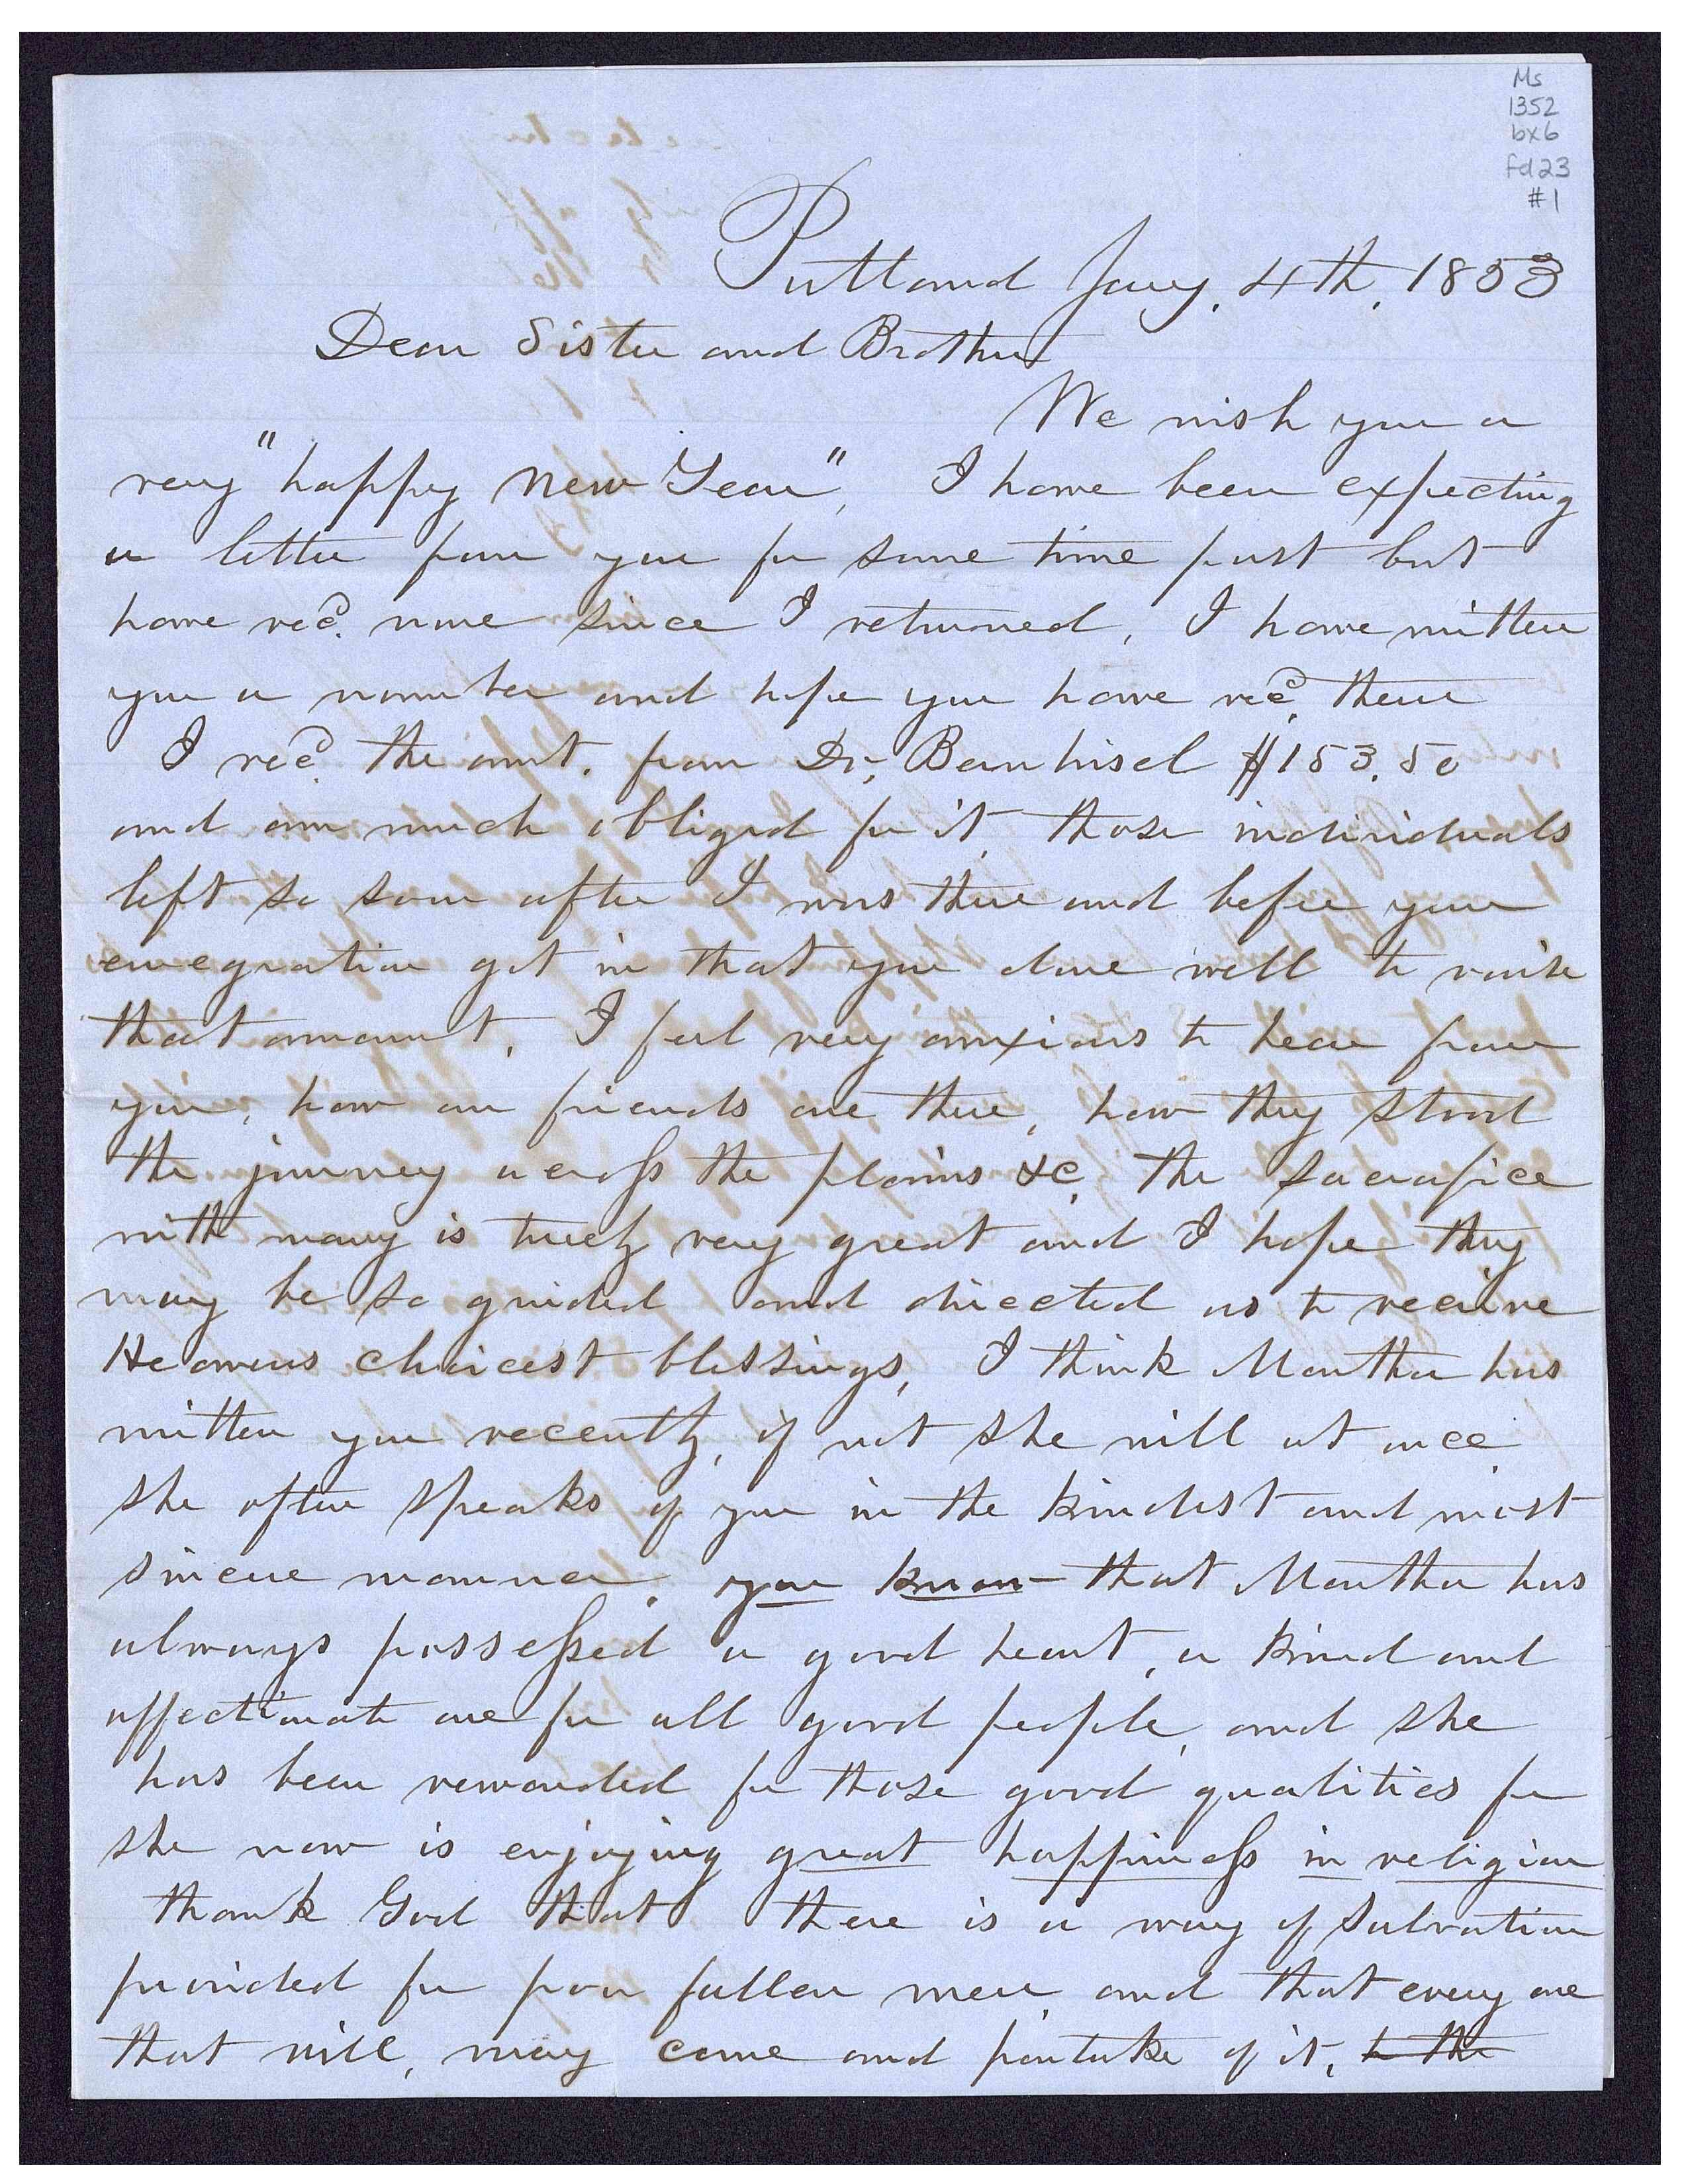 Ms
1352
bx6
fd23
#1
Portland Jany. 4th, 1853
Dear Sister and Brother
We wish you a
very "happy New Year", I have been expecting
a letter from you for some time past but
have recd. none since I returned, I have written
you a number and hope you have recd. them
I recd. the amt. from Dr. Bernhisel $153.50
and am much obliged for it, those individuals
left so soon after I was there and before your
emegration got in that you done well to raise
that amount, I feel very anxious to hear from
you, how our friends are there, how they stood
the journey across the plains &c, the sacrafice
with many is truely very great and I hope they
may be so guided and directed as to recieve
Heavens choicest blessings, I think Martha has
written you recently, if not she will at once
she often speaks of you in the kindest and most
sincere manner. you know that Martha has
always possessed a good heart, a kind and
affectionate one for all good people, and she
has been rewarded for those good qualities for
she now is enjoying great happiness in religion
thank God that there is a way of salvation
provided for poor fallen men, and that every one
that will, may come and partake of it, to the